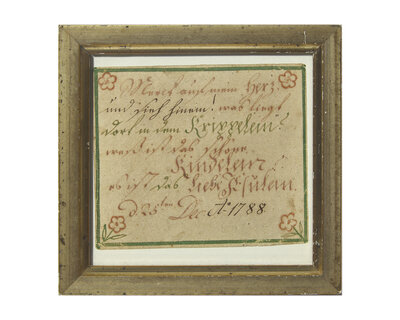 Merck auf mein Herz
und sieh hinein! was liegt
dort in dem Krippelein?
weß ist das schöne
Kindelein
es ist das liebe Jesulein.
d 25ten Dec Ao 1788